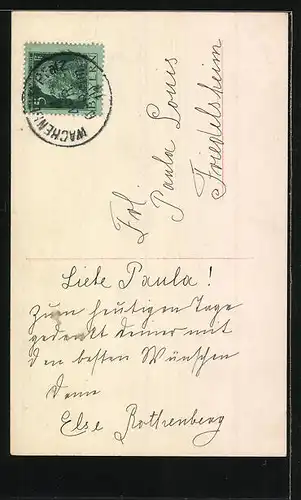 5
BAYERN
WACHENH
Frl.
Paula Louis
Friedelsheim
Liebe Paula!
Zum heutigen Tage
gedenkt deiner mit
den besten Wünschen
Deine
Else Rothenberg